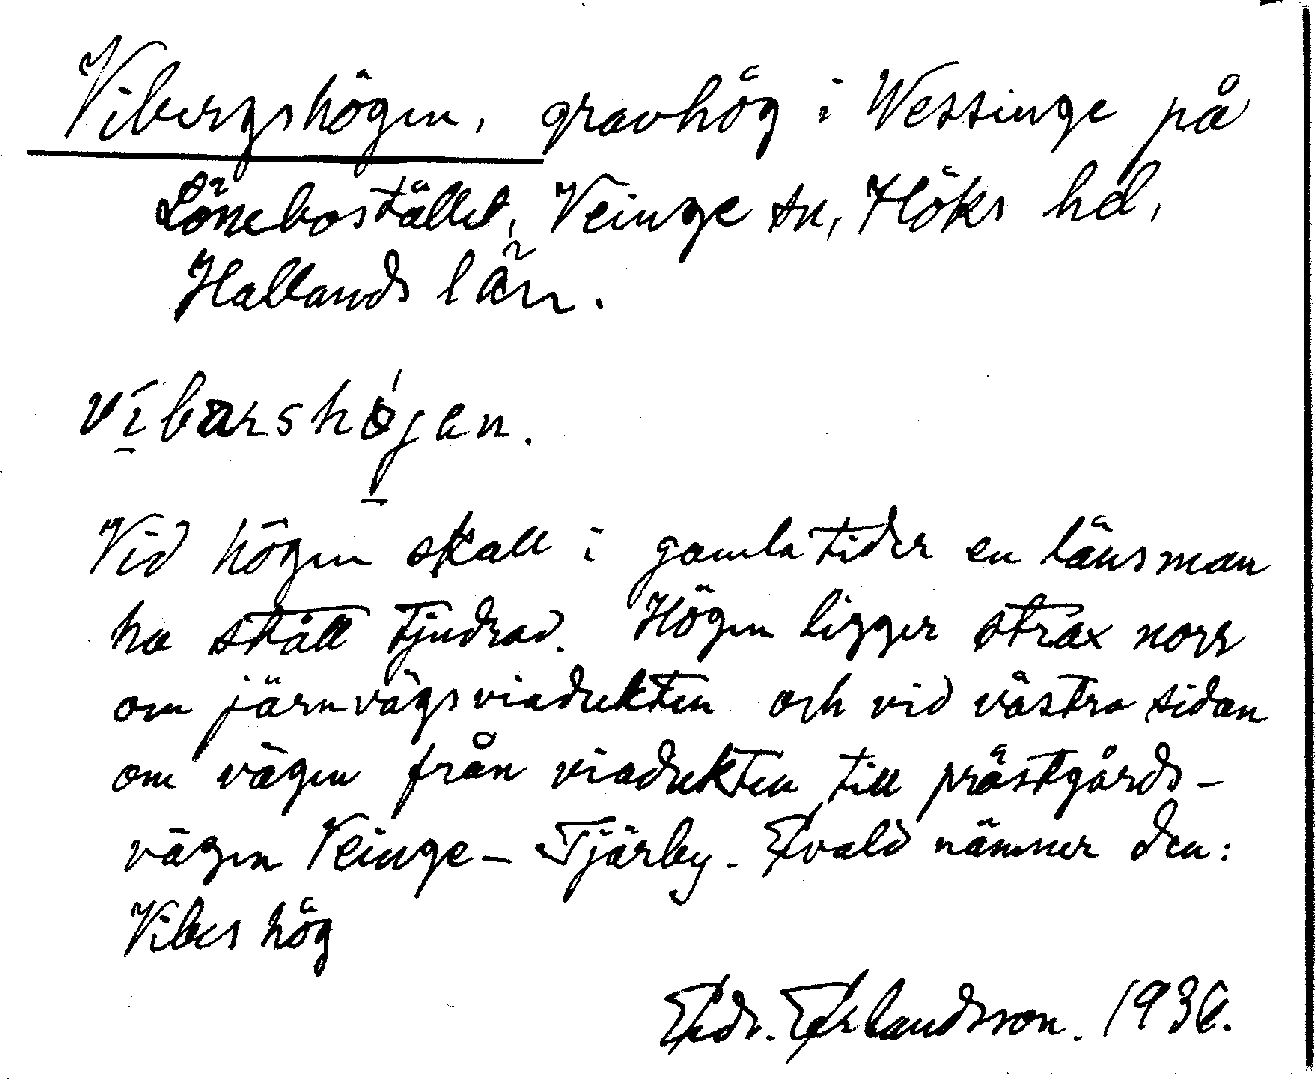 Vibergshögen, gravhög i Wessinge på
Löneboställel, Veinge sn, Höks hd,
Hallands län.
vibarshøjen.
Vid högen skall i gamla tider en länsman
ha stått tjudrad. Högen ligger strax norr
om järnvägsviadukten och vid västra sidan
om vägen från viadukten till prästgårds-
vägen Veinge - Tjärby. Ewald nämner den:
Vibes hög
Erlandsson. 1936.